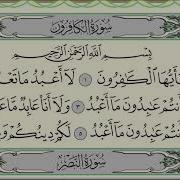 سُورَةُ الْكَافِرُونَ
بِسْمِ ٱللَّهِ ٱلرَّحْمَٰنِ ٱلرَّحِيمِ
يَٰٓأَيُّهَا ٱلْكَٰفِرُونَ ١ لَآ أَعْبُدُ مَا تَعْ
نتُمْ عَٰبِدُونَ مَآ أَعْبُدُ ٣ وَلَآ أَنَا۠ عَابِدٌ مَّا عَ
نتُمْ عَٰبِدُونَ مَآ أَعْبُدُ ٥ لَكُمْ دِينُكُمْ وَ
سُورَةُ النَّصْرِ